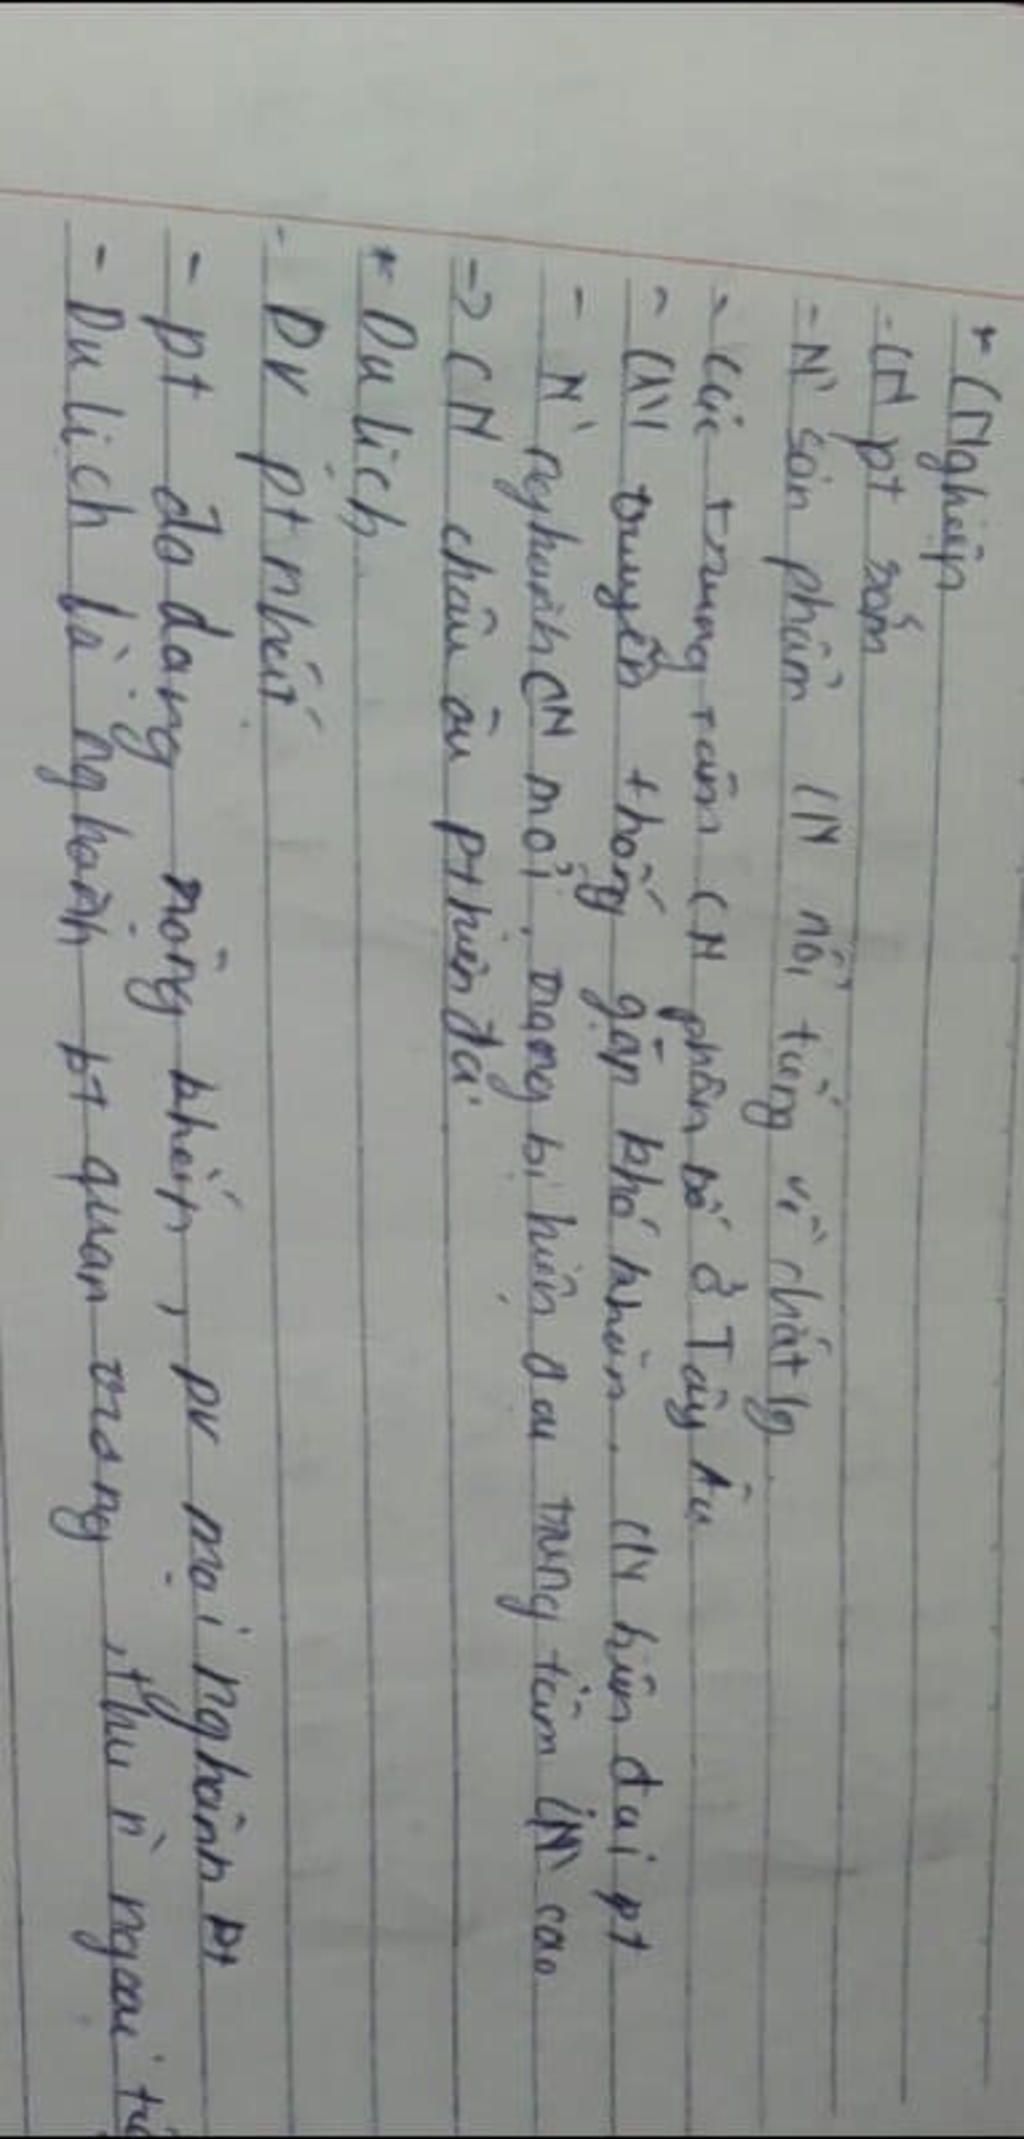 * CNghiệp
- CN pt sớm
- N` sản phẩm CN nổi tiếng về chất lg
- Các trung tâm CN phân bố ở Tây Âu
- CN truyền thống gặp khó khăn. CN hiện đại pt
- N` nghành CN mới, trang bị hiện đại trung tâm CN` cao
-> CN châu âu pt hiện đại
* Du lịch
- DV pt nhất
- pt đa dạng rộng khắp, pv mọi nghành pt
- Du lịch là nghành pt quan trọng, thu n` ngoại